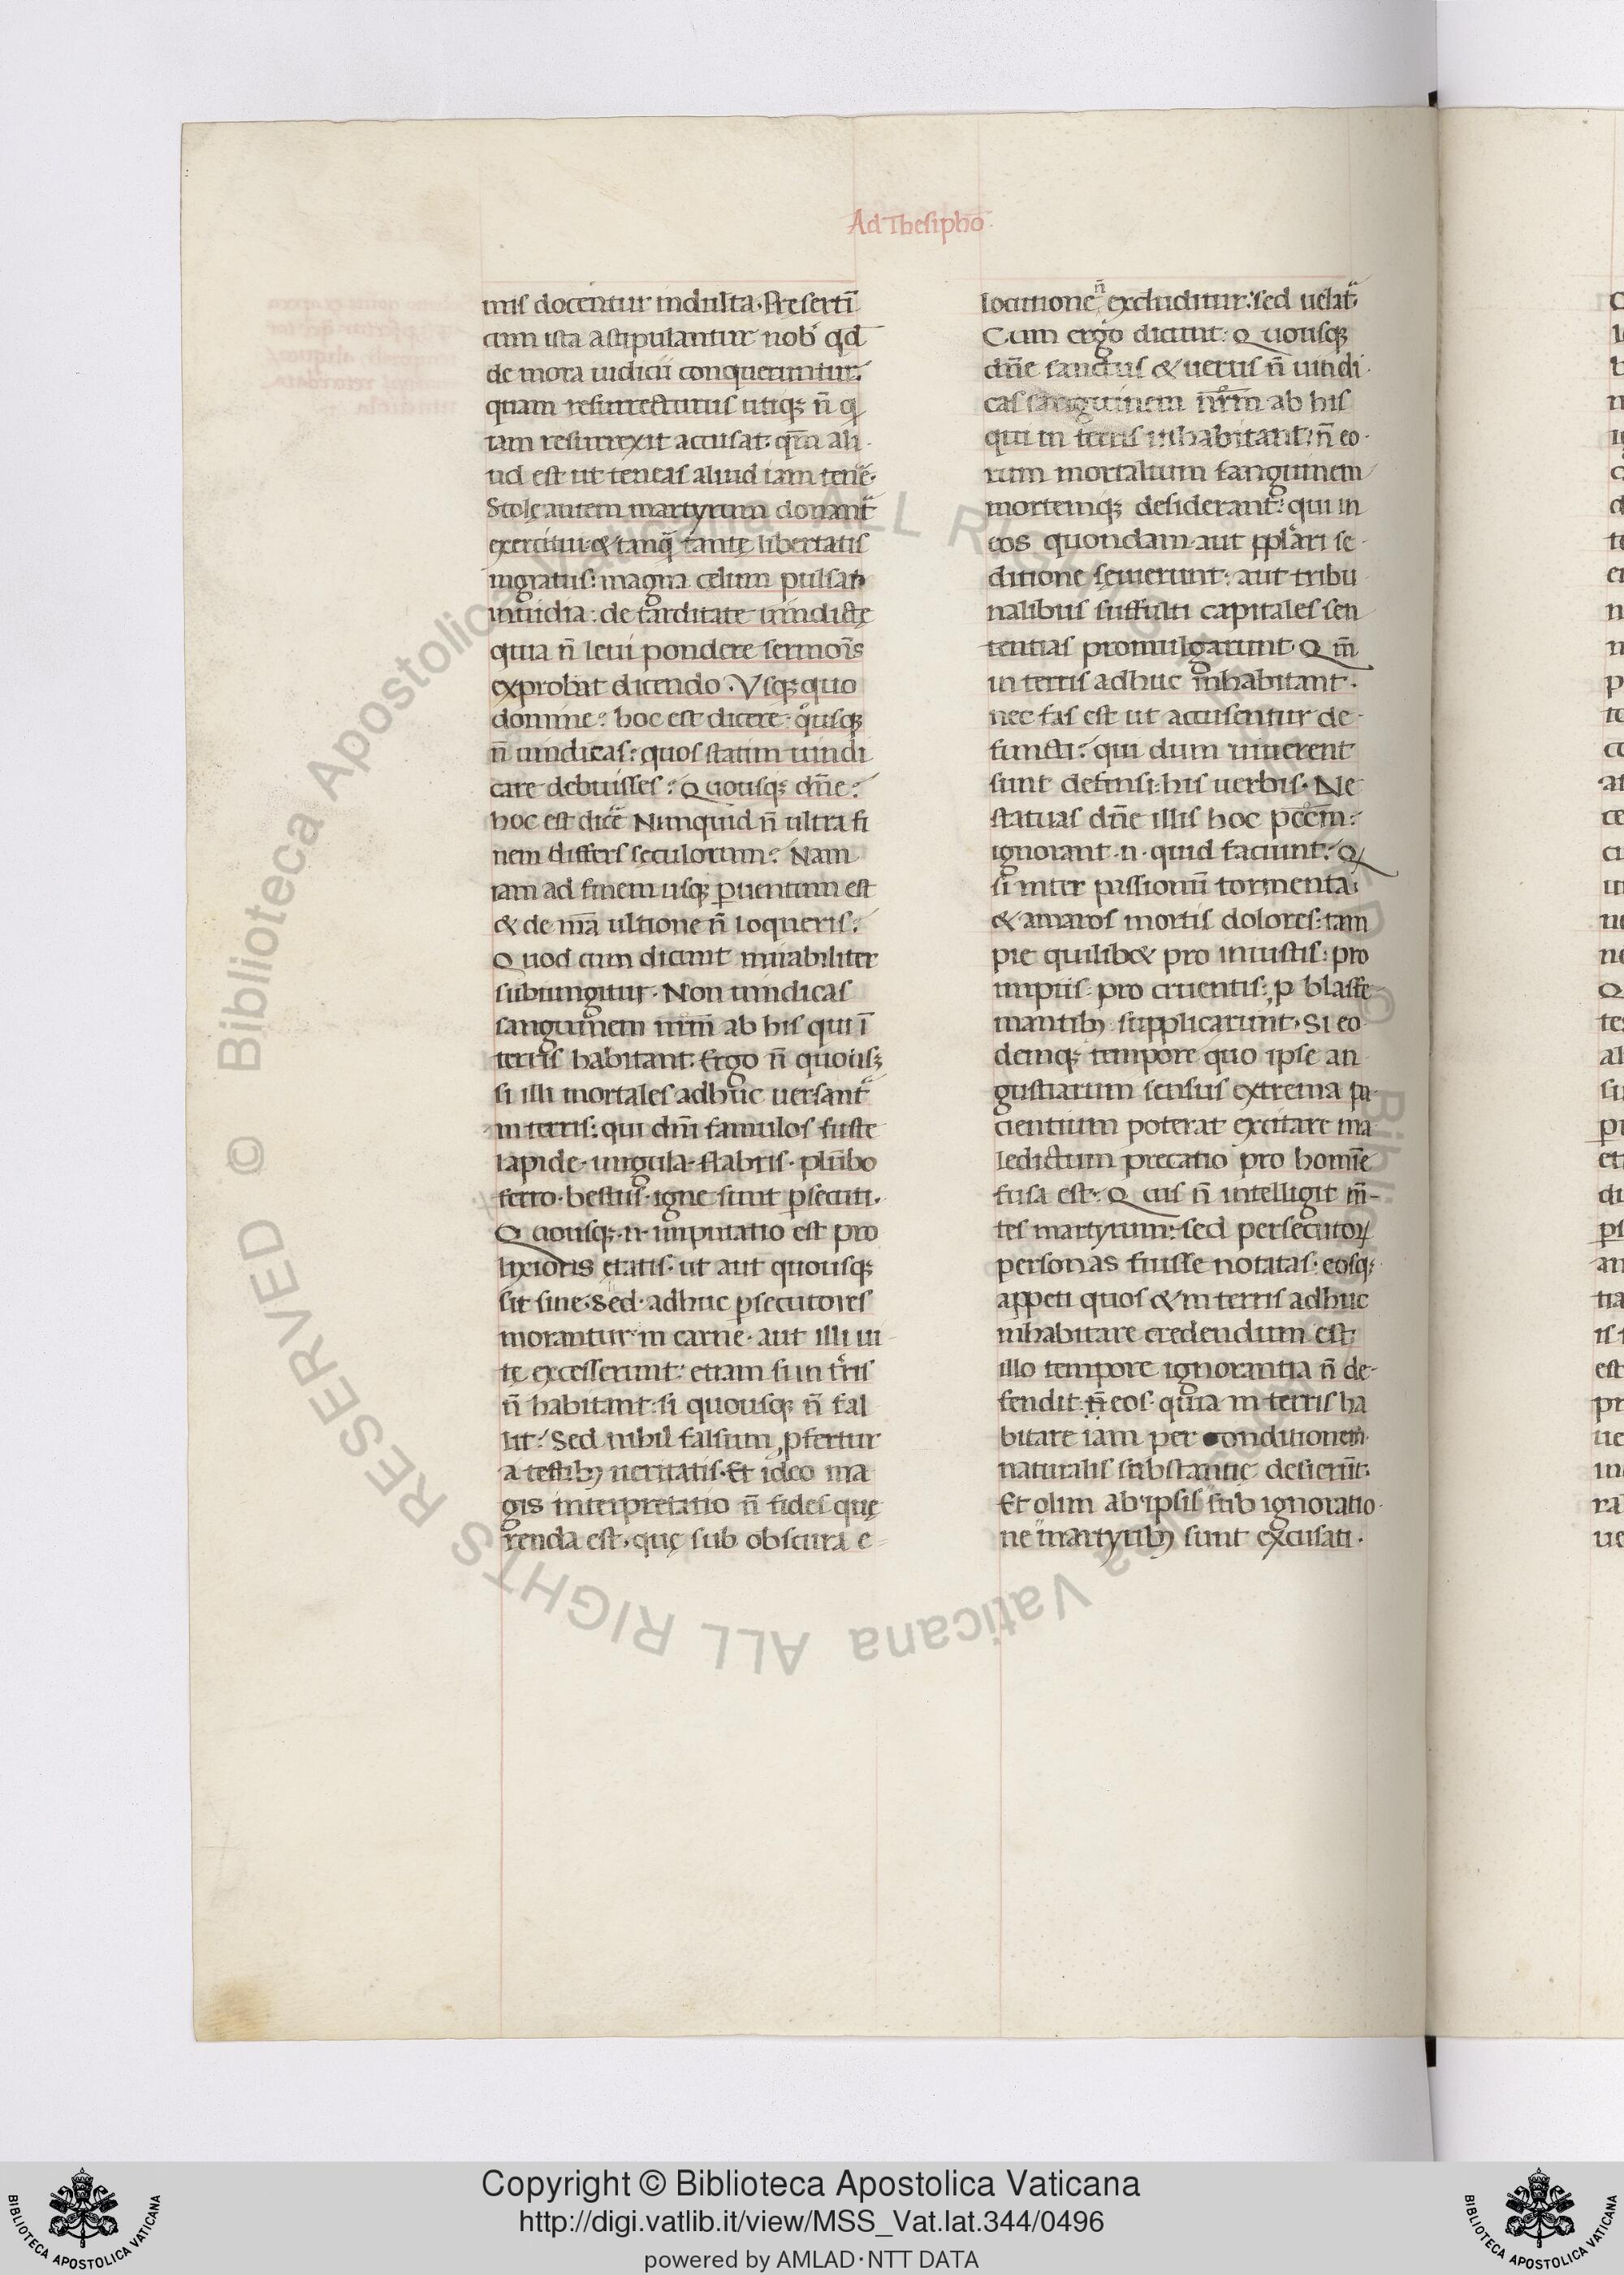 Ad Thesiphō
mis docentur indulta. Presertī
cum ista astipulantur nob' qd̄
de mora iudicii conqueruntur.
quam resurrecturus utiqꝫ n̄ q
iam resurrexit accusat. qm̄ ali
ud est ut teneas aliud iam tenē.
Stolę autem martyrum donant
exercitui. & tanq̄ tantę libertatis
ingratus: magna celum pulsat
inuidia: de tarditate uindictę
quia n̄ leui pondere sermōis
exprobat dicendo. Vsqꝫ quo
domine? hoc est dicere. qͥusqꝫ
n̄ uindicas: quos statim uindi
care debuisses? Quousqꝫ dn̄e?
hoc est dicē Nunquid n̄ ultra fi
nem differs seculorum? Nam
iam ad finem usqꝫ ꝑuentum est
& de nr̄a ultione n̄ loqueris?
Quod cum dicunt mirabiliter
subiungitur. Non uindicas
sanguinem nrm̄ ab his qui ī
terris habitant. Ergo n̄ quousꝫ
si illi mortales adhuc uersant
in terris: qui dn̄i famulos fuste
lapide. ungula. flabris. plūbo
ferro. bestiis. igne sunt ꝑsecuti.
Quousqꝫ .n. imputatio est pro
lixioris ętatis. ut aut quousqꝫ
sit sine. Sed adhuc ꝑsecutores
morantur in carne. aut illi ui
tę excesserunt: etiam si in tr̄is
n̄ habitant. si quousqꝫ n̄ fal
lit? Sed nihil falsum ꝓfertur
a testibꝫ ueritatis. Et ideo ma
gis interpretatio n̄ fides quę
renda est. quę sub obscura e
locutione n̄ excluditur: sed uelat.
Cum ergo dicunt. Quousqꝫ
dn̄e sanctus & uerus n̄ uindi
cas sanguinem nr̄m ab his
qui in terris inhabitant: n̄ eo
rum mortalium sanguinem
mortemqꝫ desiderant: qui in
eos quondam aut pplari se
ditione sęuierunt: aut tribu
nalibus suffulti capitales sen
tentias promulgarunt. Qm̄
in terris adhuc inhabitant.
nec fas est ut accusentur de
functi: qui dum uiuerent
sunt defensi: his uerbis. Ne
statuas dn̄e illis hoc pccm̄:
ignorant .n. quid faciunt. Q
si inter passionū tormenta
& amaros mortis dolores: tam
pie quilib& pro iniustis: pro
impiis. pro cruentis: ꝓ blasfe
mantibꝫ supplicarunt. Si eo
demqꝫ tempore quo ipse an
gustiarum sensus extrema pa
cientium poterat excitare ma
ledictum precatio pro homīe
fusa est. Quis n̄ intelligit m̄
tes martyrum: sed persecutoꝝ
personas fuisse notatas. eosqꝫ
appeti quos & in terris adhuc
inhabitare credendum est.
illo tempore ignorantia n̄ de
fendit. n̄ eos. quia in terris ha
bitare iam per conditionem
naturalis substantie desierūt.
Et olim ab ipsis sub ignoratio
ne martyribꝫ sunt excusati.
Copyright © Biblioteca Apostolica Vaticana
http://digi.vatlib.it/view/MSS_Vat.lat.344/0496
powered by AMLAD·NTT DATA
BIBLIOTECA APOSTOLICA VATICANA
BIBLIOTECA APOSTOLICA VATICANA
© Biblioteca Apostolica Vaticana ALL RIGHTS RESERVED
© Biblioteca Apostolica Vaticana ALL RIGHTS RESERVED